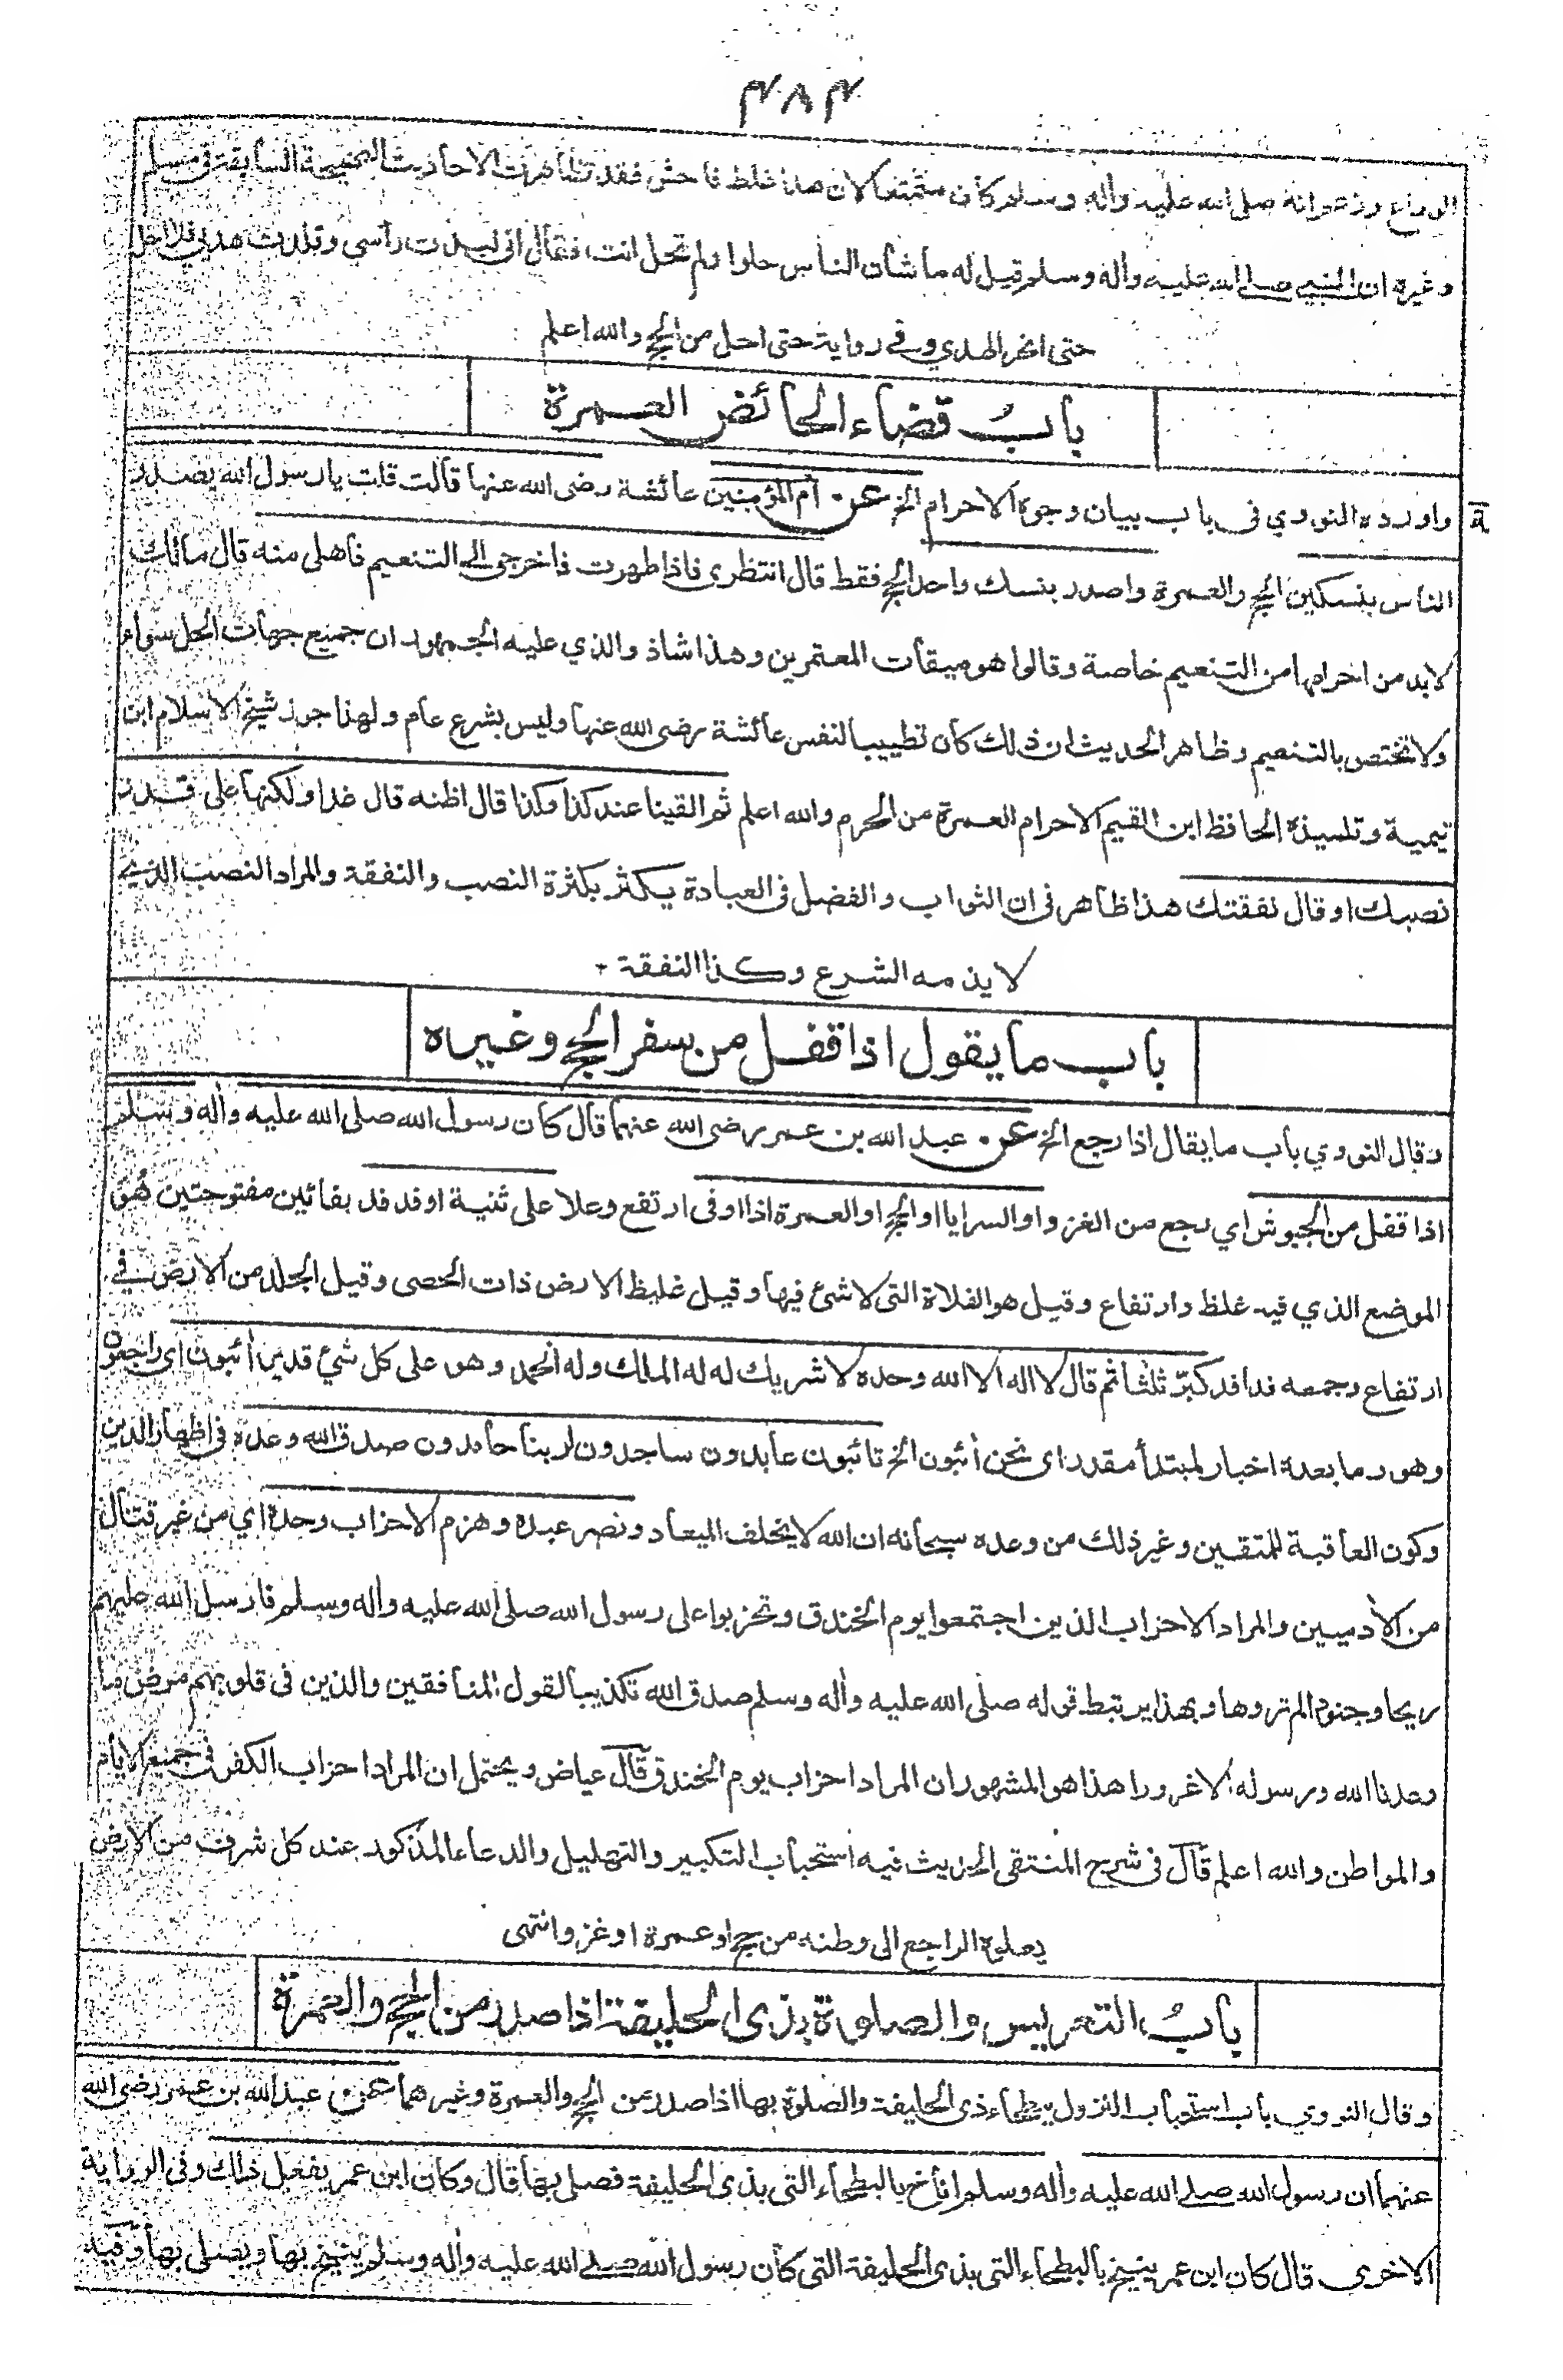 ٣٨٣
الوداع وزعم انه صلى الله عليه وأله وسلم كان متمتعا لان هذا غلط فاحش فقد تظاهرت الاحاديث الصحيحة السابقة فى مسلم
وغيره ان النبي صلے الله عليه وأله وسلم قيل له ما شان الناس حلوا ولم تحل انت فقال انى لبدت رأسي وقلدت هديي فلا احل
حتى انحر الهدي وفے رواية حتى احل من الحج والله اعلم
بابُ قضاء الحائض العمرة
واورده النووي فى باب بيان وجوه الاحرام الخ عن أم المؤمنين عائشة رضى الله عنها قالت قلت يا رسول الله يصدر
الناس بنسكين الحج والعمرة واصدر بنسك واحد الحج فقط قال انتظرى فاذا طهرت فاخرجى الے التنعيم فاهلى منه قال مالك
لا بد من احرامها من التنعيم خاصة وقالوا هو ميقات المعتمرين وهذا شاذ والذي عليه الجمهور ان جميع جهات الحل سواء
ولا تختص بالتنعيم وظاهر الحديث ان ذلك كان تطييبا لنفس عائشة رضى الله عنها وليس بشرع عام ولهذا جوز شيخ الاسلام ابن
تيمية وتلميذه الحافظ ابن القيم الاحرام العمرة من الحرم والله اعلم ثم القينا عند كذا وكذا قال اظنه قال غدا ولكنها على قدر
نصبك او قال نفقتك هذا ظاهر فى ان الثواب والفضل فى العبادة يكثر بكثرة النصب والنفقة والمراد النصب الذي
لا يذمه الشرع وكذا النفقة
باب ما يقول اذا قفل من سفر الحج وغيره
وقال النووي باب ما يقال اذا رجع الخ عن عبد الله بن عمر رضى الله عنهما قال كان رسول الله صلى الله عليه وأله وسلم
اذا قفل من الجيوش اي رجع من الغزو او السرايا او الحج او العمرة اذا اوفى ارتفع وعلا على ثنية او فدفد بفائين مفتوحتين هو
الموضع الذي فيه غلظ وارتفاع وقيل هو الفلاة التى لا شئ فيها وقيل غليظ الارض ذات الحصى وقيل الجلد من الارض فے
ارتفاع وجمعه فدافد كبّر ثلثا ثم قال لا اله الا الله وحده لا شريك له له الملك وله الحمد وهو على كل شئ قدير أئبون اى راجعون
وهو وما بعده اخبار لمبتدأ مقدر اى نحن أئبون الخ تائبون عابدون ساجدون لربنا حامدون صدق الله وعده فى اظهار الدين
وكون العاقبة للمتقين وغير ذلك من وعده سبحانه ان الله لا يخلف الميعاد ونصر عبده وهزم الاحزاب وحده اي من غير قتال
من الأدميين والمراد الاحزاب الذين اجتمعوا يوم الخندق وتحزبوا على رسول الله صلى الله عليه وأله وسلم فارسل الله عليهم
ريحا وجنودا لم تروها وبهذا يرتبط قوله صلى الله عليه وأله وسلم صدق الله تكذيبا لقول المنافقين والذين فى قلوبهم مرض ما
وعدنا الله ورسوله الا غرورا هذا هو المشهور ان المراد احزاب يوم الخندق قال عياض ويحتمل ان المراد احزاب الكفر فى جميع الايام
والمواطن والله اعلم قال فى شرح المنتقى الحديث فيه استحباب التكبير والتهليل والدعاء المذكور عند كل شرف من الارض
يعلوه الراجع الى وطنه من حج او عمرة او غزو انتهى
بابُ التعريس والصلوة بذى الحليفة اذا صدر من الحج والعمرة
وقال النووي باب استحباب النزول ببطحاء ذى الحليفة والصلوة بها اذا صدر من الحج والعمرة وغيرهما عن عبد الله بن عمر رضى الله
عنهما ان رسول الله صلے الله عليه وأله وسلم اناخ بالبطحاء التى بذى الحليفة فصلى بها قال وكان ابن عمر يفعل ذلك وفى الرواية
الاخرى قال كان ابن عمر ينيخ بالبطحاء التى بذى الحليفة التى كان رسول الله صلے الله عليه وأله وسلم ينيخ بها ويصلى بها وفيه